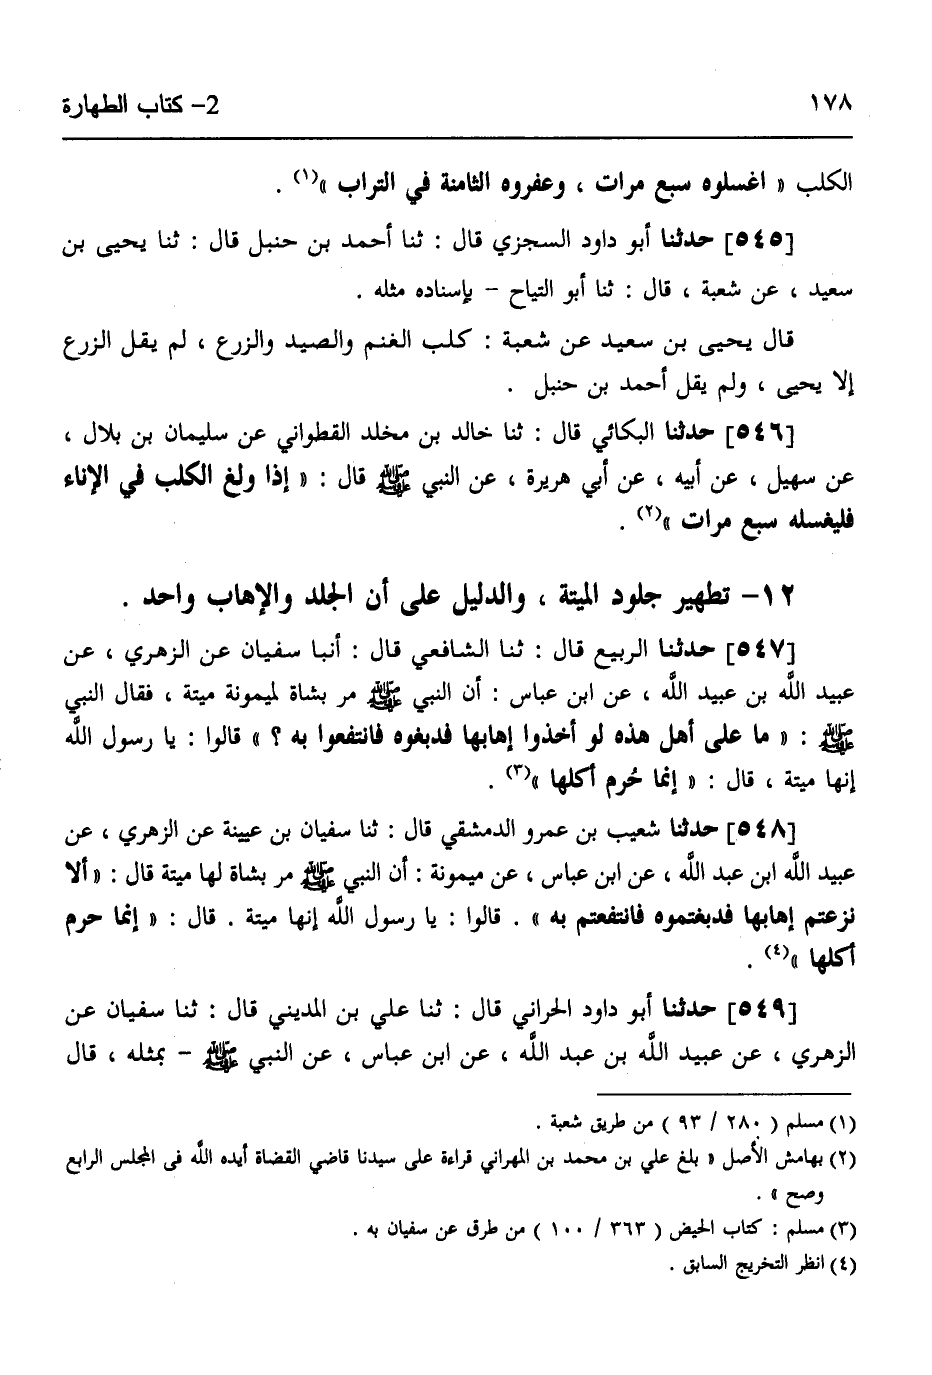 ١٧٨ 2- كتاب الطهارة
الكلب « اغسلوه سبع مرات ، وعفروه الثامنة في التراب »(١) .
[٥٤٥] حدثنا أبو داود السجزي قال : ثنا أحمد بن حنبل قال : ثنا يحيى بن
سعيد ، عن شعبة ، قال : ثنا أبو التياح – بإسناده مثله .
قال يحيى بن سعيد عن شعبة : كلب الغنم والصيد والزرع ، لم يقل الزرع
إلا يحيى ، ولم يقل أحمد بن حنبل .
[٥٤٦] حدثنا البكائي قال : ثنا خالد بن مخلد القطواني عن سليمان بن بلال ،
عن سهيل ، عن أبيه ، عن أبي هريرة ، عن النبي ﷺ قال : « إذا ولغ الكلب في الإناء
فليغسله سبع مرات »(٢) .
١٢- تطهير جلود الميتة ، والدليل على أن الجلد والإهاب واحد .
[٥٤٧] حدثنا الربيع قال : ثنا الشافعي قال : أنبا سفيان عن الزهري ، عن
عبيد اللَّه بن عبيد اللَّه ، عن ابن عباس : أن النبي ﷺ مر بشاة لميمونة ميتة ، فقال النبي
ﷺ : « ما على أهل هذه لو أخذوا إهابها فدبغوه فانتفعوا به ؟ » قالوا : يا رسول اللَّه
إنها ميتة ، قال : « إنما حُرم أكلها »(٣) .
[٥٤٨] حدثنا شعيب بن عمرو الدمشقي قال : ثنا سفيان بن عيينة عن الزهري ، عن
عبيد اللَّه ابن عبد اللَّه ، عن ابن عباس ، عن ميمونة : أن النبي ﷺ مر بشاة لها ميتة قال : « ألا
نزعتم إهابها فدبغتموه فانتفعتم به » . قالوا : يا رسول اللَّه إنها ميتة . قال : « إنما حرم
أكلها »(٤) .
[٥٤٩] حدثنا أبو داود الحراني قال : ثنا علي بن المديني قال : ثنا سفيان عن
الزهري ، عن عبيد اللَّه بن عبد اللَّه ، عن ابن عباس ، عن النبي ﷺ – بمثله ، قال
(١) مسلم ( ٢٨٠ / ٩٣ ) من طريق شعبة .
(٢) بهامش الأصل « بلغ علي بن محمد بن المهراني قراءة على سيدنا قاضي القضاة أيده اللَّه فى المجلس الرابع
وصح » .
(٣) مسلم : كتاب الحيض ( ٣٦٣ / ١٠٠ ) من طرق عن سفيان به .
(٤) انظر التخريج السابق .